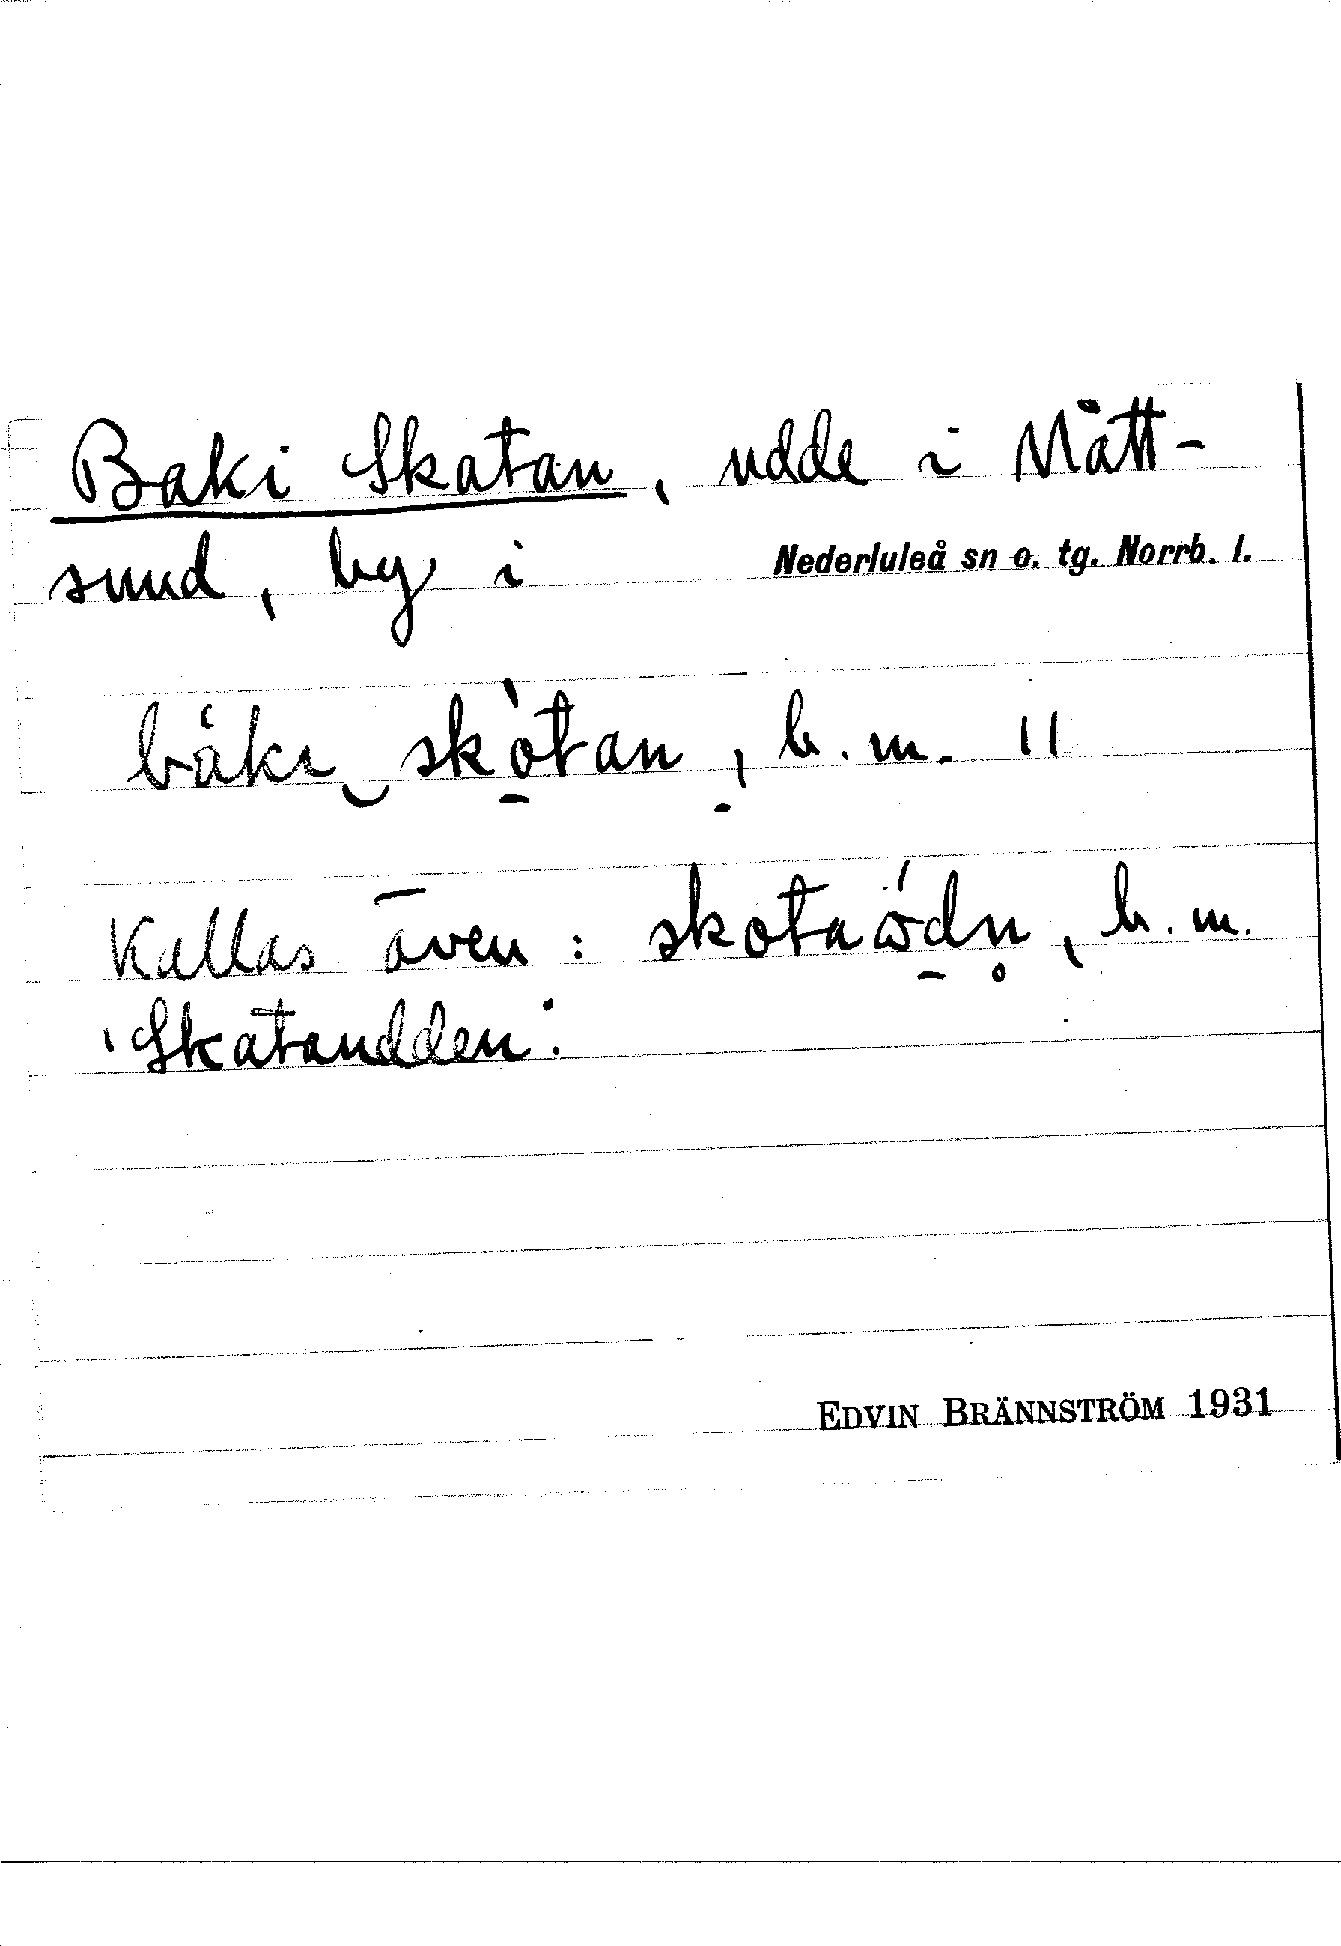 Baki Skatan, udde i Mått-
sund, by i Nederluleå sn o. tg. Norrb. l.
bákı‿sk̀o̱tan, b. m. ||
Kallas även: skotaẃ̱dn̥, b. m.
'Skatandden'.
EDVIN BRÄNNSTRÖM 1931